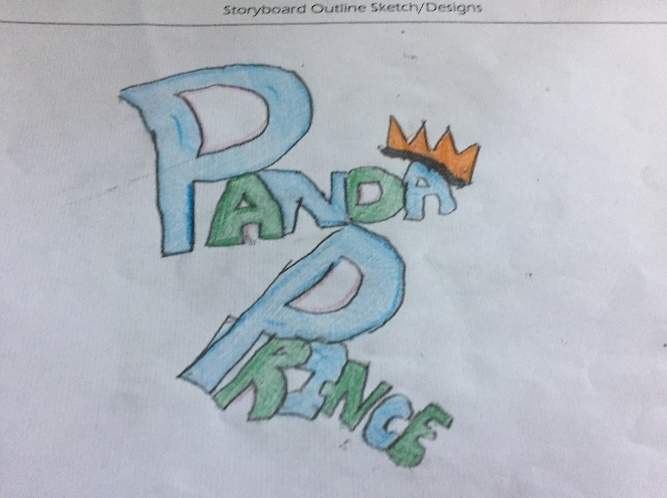 Storyboard Outline Sketch/Designs
PANDA
PRINCE